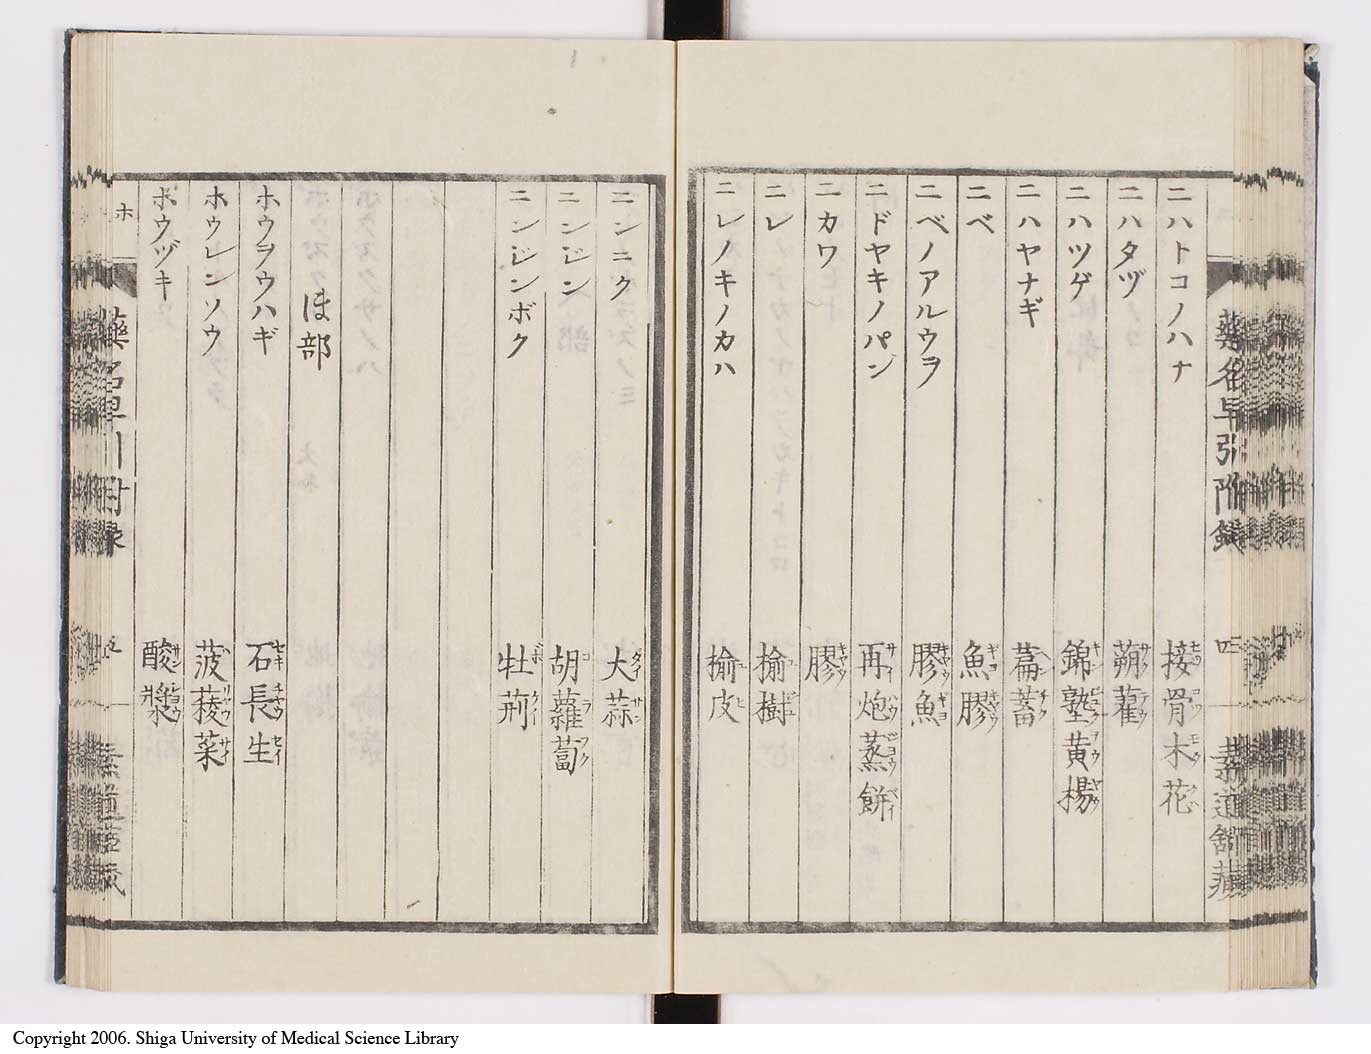 藥名早引附錄
四
素道舘藏
ニハトコノハナ 接骨木花
ニハタヅ 蒴藋
ニハツゲ 錦塾黄楊
ニハヤナギ 萹蓄
ニベ 魚膠
ニベノアルウヲ 膠魚
ニドヤキノパン 再炮蒸餅
ニカワ 膠
ニレ 楡樹
ニレノキノカハ 楡皮
ニンニク 大蒜
ニンジン 胡蘿蔔
ニンジンボク 牡荊
ほ部
ホウヲウハギ 石長生
ホウレンソウ 菠薐菜
ホウヅキ 酸漿
ホ
藥名早引附錄
五
Copyright 2006. Shiga University of Medical Science Library